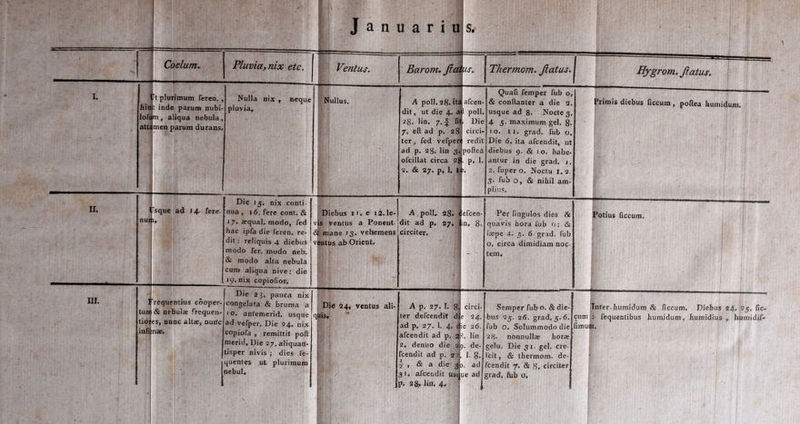 Januarius.
Coelum.
Pluvia, nix etc.
Ventus.
Barom. ſtatus.
Thermom. ſtatus.
Hygrom. ſtatus.
I.
Ut plurimum ſeren.,
hinc inde parum nubi-
loſum, aliqua nebula,
attamen parum durans.
Nulla nix, neque
pluvia.
Nullus.
A poll. 28. ita aſcen-
dit, ut die 4. ad poll.
28. lin. 7. Die
7. eſt ad p. 28 circi-
ter, ſed veſpere redit
ad p. 28. lin 3. poſtea
oſcillat circa 28. p. l.
2. & 27. p. l. 10.
Quaſi ſemper ſub 0,
& conſtanter a die 2.
usque ad 8. Nocte 3.
4 5. maximum gel. 8.
10. 11. grad. ſub 0.
Die 6. ita aſcendit, ut
diebus 9. & 10. habe-
antur in die grad. 1.
2. ſuper 0. Noctu 1. 2.
3. ſub 0, & nihil am-
plius.
Primis diebus ſiccum, poſtea humidum.
II.
Usque ad 14 fere
num.
Die 15. nix conti-
nua, 16. fere cont. &
17. æqual. modo, ſed
hac ipſa die ſeren. re-
dit: reliquis 4 diebus
modo ſer. modo neb.
& modo alta nebula
cum aliqua nive: die
19. nix copioſior.
Diebus 11. e 12. le-
vis ventus a Ponent.
& mane 13. vehemens
ventus ab Orient.
A poll. 28. deſcen-
dit ad p. 27. lin. 8.
circiter.
Per ſingulos dies &
quavis hora ſub 0: &
ſæpe 4. 5. 6 grad. ſub
0. circa dimidiam noc-
tem.
Potius ſiccum.
III.
Frequentius cooper-
tum & nebulæ frequen-
tiores, nunc altæ, nunc
infimæ.
Die 23. pauca nix
congelata & bruma a
10. antemerid. usque
ad veſper. Die 24. nix
copioſa, remittit poſt
merid. Die 27. aliquan-
tisper nivis; dies ſe-
quentes ut plurimum
nebul.
Die 24, ventus ali-
quis.
A p. 27. l. 8. circi-
ter deſcendit die 24.
ad p. 27. l. 4. die 26.
aſcendit ad p. 28. lin
2. denuo die 29. de-
ſcendit ad p. 27. l. 8.
½, & a die 30. ad
31. aſcendit usque ad
p. 28. lin. 4.
Semper ſub 0. & die-
bus 25. 26. grad. 5. 6.
ſub 0. Solummodo die
28. nonnullæ horæ
gelu. Die 31. gel. cre-
ſcit, & thermom. de-
ſcendit 7. & 8. circiter
grad. ſub 0.
Inter. humidum & ſiccum. Diebus 24. 25. ſic-
cum: ſequentibus humidum, humidius, humidiſ-
ſimum.